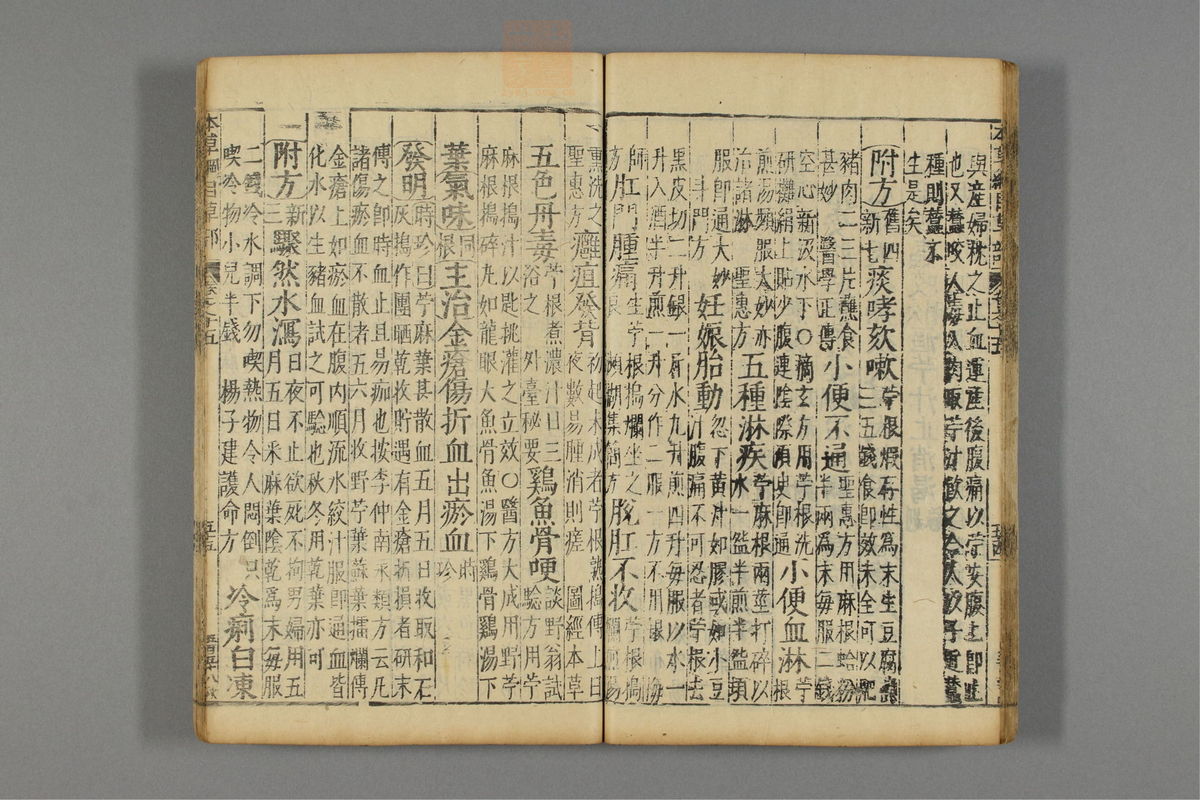 與產婦枕之止血運產後腹痛以苧安腹上即止
也又蠶咬人毒入肉取苧汁飲之今人以苧近蠶
種則蠶不
生是矣
附方舊四新七痰哮欬嗽苧根煅存性為末生豆腐蘸三五錢食即效未全可以肥
豬肉二三片蘸食甚妙醫學正傳小便不通聖惠方用麻根蛤粉半兩為末每服二錢
空心新汲水下〇摘玄方用苧根洗研攤絹上貼少腹連陰際須臾即通小便血淋苧根
煎湯頻服大妙亦治諸淋聖惠方五種淋疾苧麻根兩莖打碎以水一盌半煎半盌頓
服即通大妙斗門方妊娠胎動忽下黃汁如膠或如小豆汁腹痛不可忍者苧根去
黑皮切二升銀一斤水九升煎四升每服以水一
升入酒半升煎一升分作二服一方不用銀梅
師肛門腫痛生苧根搗爛坐之良瀕湖集簡方脫肛不收苧根搗
熏洗之聖惠方癰疽發背初起未成者苧根熟搗傅上日夜數易腫消則瘥圖經本草
五色丹毒苧根煮濃汁日三浴之外臺秘要雞魚骨哽談野翁試驗方用苧
麻根搗汁以匙挑灌之立效〇醫方大成用野苧
麻根搗碎丸如龍眼大魚骨魚湯下雞骨雞湯下
葉氣味同根主治金瘡傷折血出瘀血時珍
發明時珍曰苧麻葉甚散血五月五日收取和石灰搗作團晒乾收貯遇有金瘡折損者研末
傅之即時血止且易痂也按李仲南永類方云凡
諸傷瘀血不散者五六月收野苧葉蘇葉擂爛傅
金瘡上如瘀血在腹內順流水絞汁服即通血皆
化水以生豬血試之可驗也秋冬用乾葉亦可
附方新三驟然水瀉日夜不止欲死不拘男婦用五月五日采麻葉陰乾為末每服
二錢冷水調下勿喫熱物令人悶倒只喫冷物小兒半錢楊子建護命方冷痢白凍
本草綱目草部 卷之十五 五五